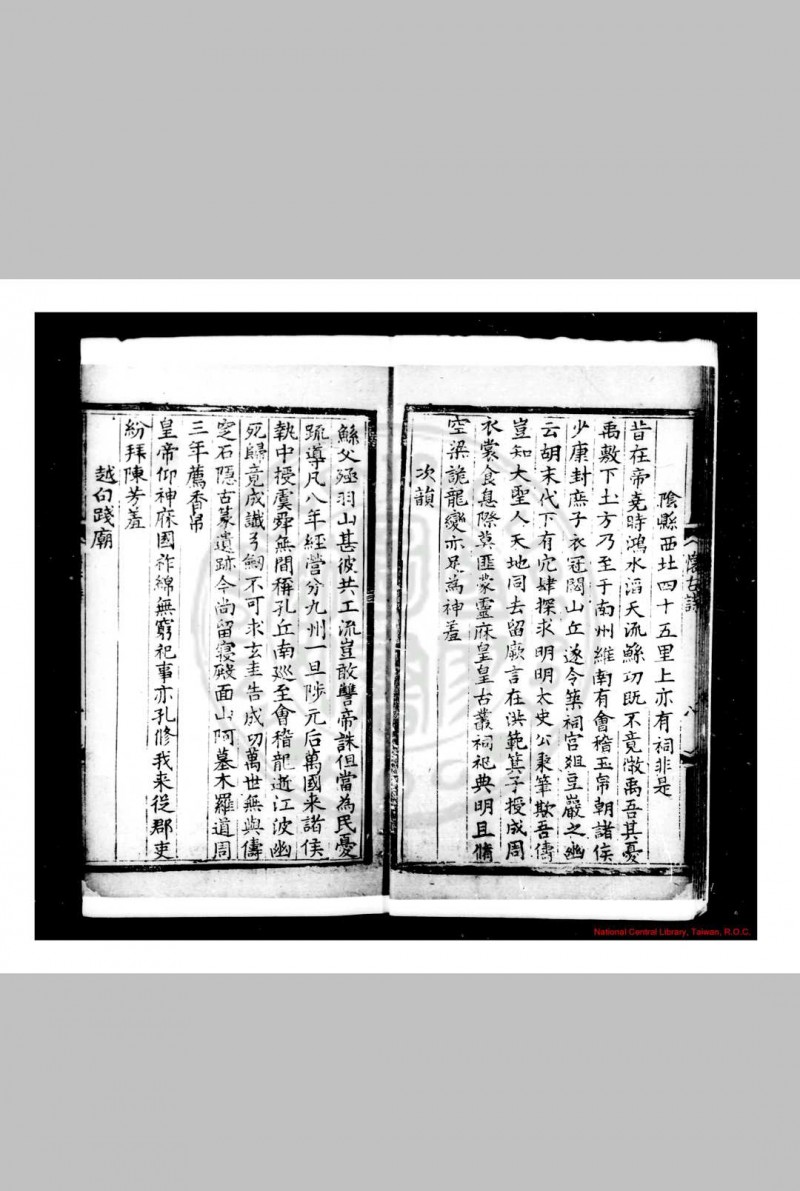 陰縣西北四十五里上亦有祠非是
昔在帝堯時鴻水滔天流鯀功既不竟微禹吾其憂
禹敷下土方乃至于南州維南有會稽玉帛朝諸侯
少康封庶子衣冠閟山丘遂令築祠宮俎豆嚴之幽
云胡末代下有穴肆探求明明太史公秉筆欺吾儔
豈知大聖人天地同去留厥言在洪範箕子授成周
衣裳食息際莫匪蒙靈庥皇皇古叢祠祀典明且脩
空梁詭龍變亦足為神羞
次韻
鯀父殛羽山甚彼共工流豈敢讐帝誅但當為民憂
疏導凡八年經營分九州一旦陟元后萬國来諸侯
執中授虞舜無間稱孔丘南巡至會稽龍逝江波幽
死歸竟成讖弓劒不可求玄圭告成功萬世無與儔
窆石隱古篆遺跡今尚留寢殿面山阿墓木羅道周
三年薦香帛
皇帝仰神庥國祚綿無窮祀事亦孔修我来從郡吏
紛拜陳芳羞
越句踐廟
懷古詩
八
National Central Library, Taiwan, R.O.C.